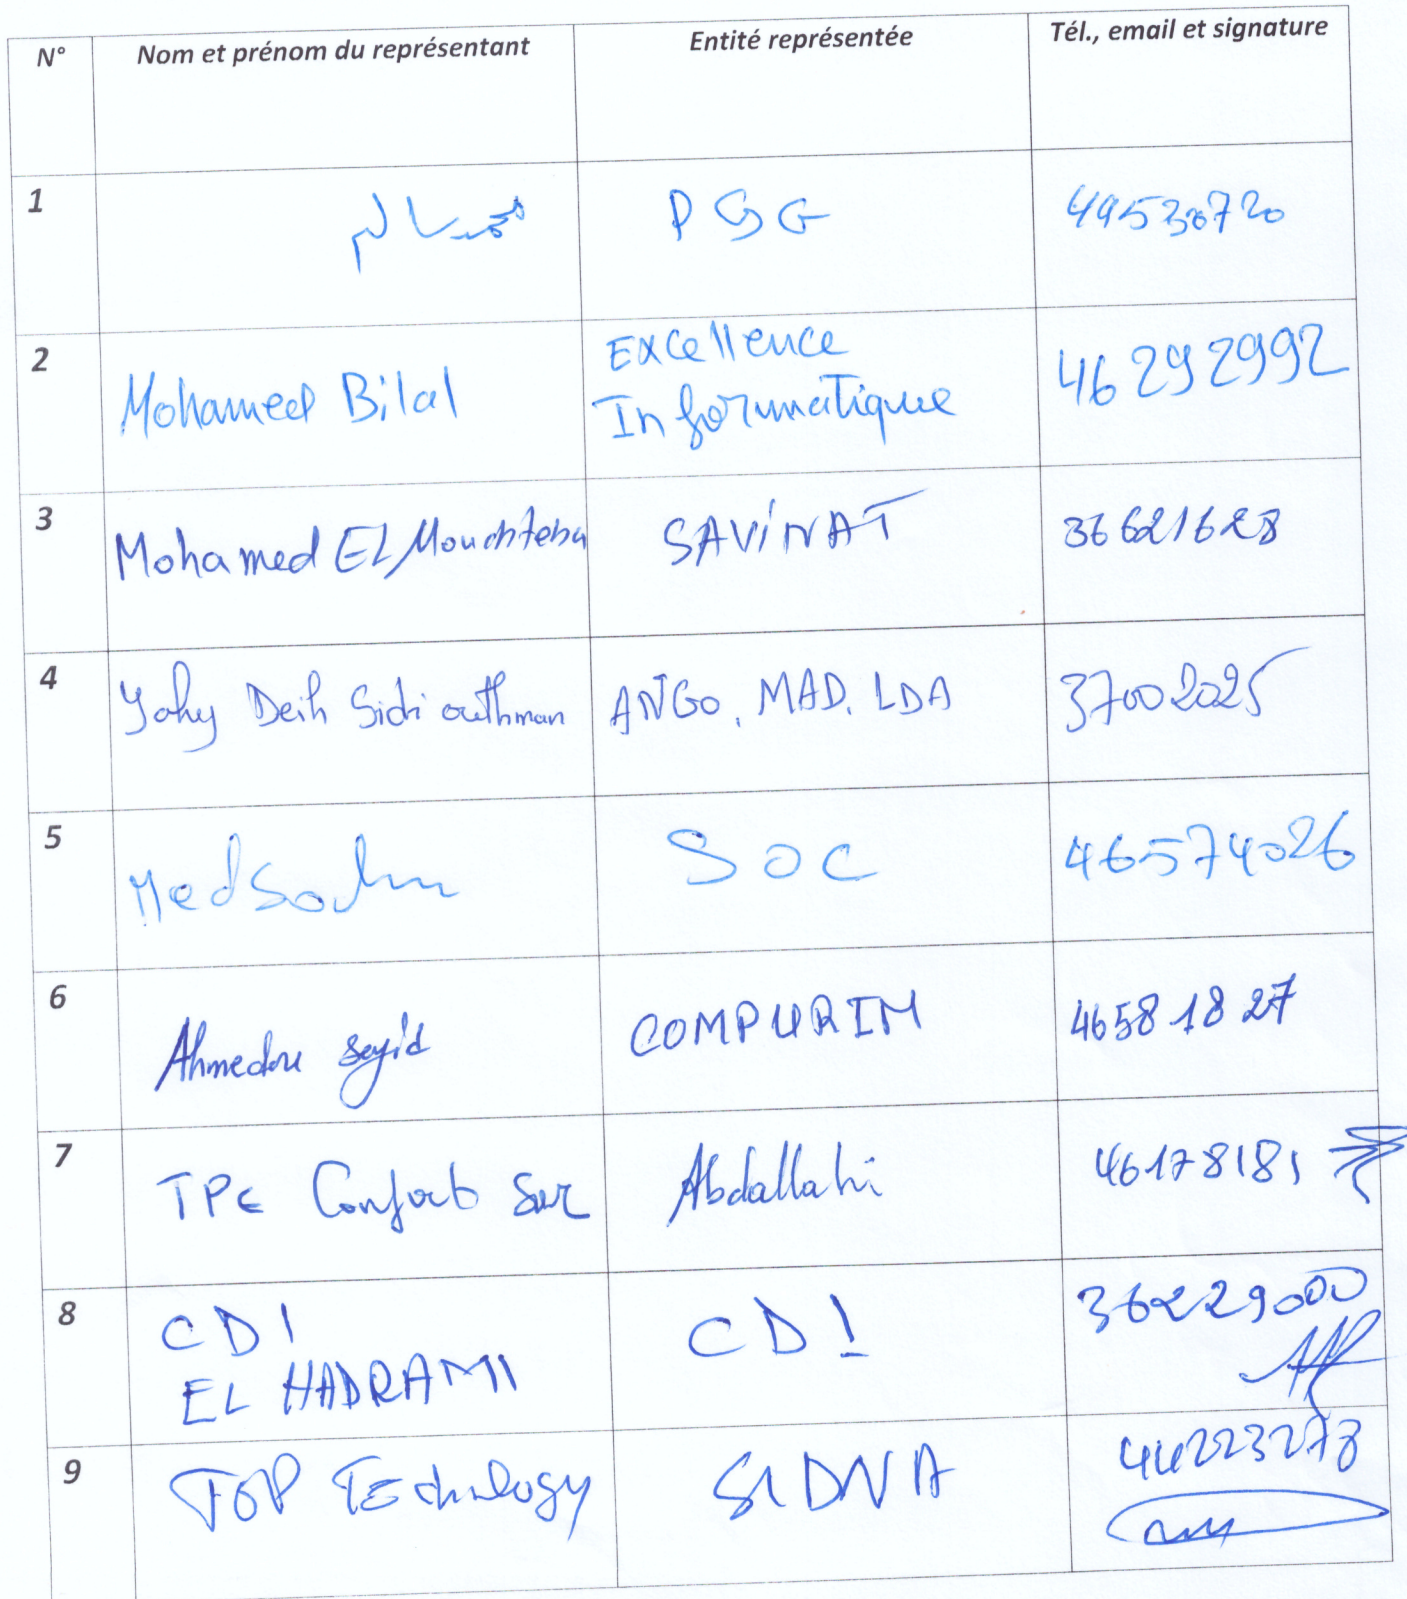 N° Nom et prénom du représentant Entité représentée Tél., email et signature
1 محمد سالم PSG 49530720
2 Mohamed Bilal Excellence Informatique 46292992
3 Mohamed EL Mouchteba SAVINAT 36621628
4 Yahy Deih Sidi outhman ANGO. MAD. LDA 37002025
5 Med SOC 46574026
6 Ahmedou seyid COMPURIM 46581827
7 TPE Confort Sur Abdallahi 46178181
8 CDI CDI 36229000
EL HADRAMI
9 TOP TEchnology SIDNA 44223278